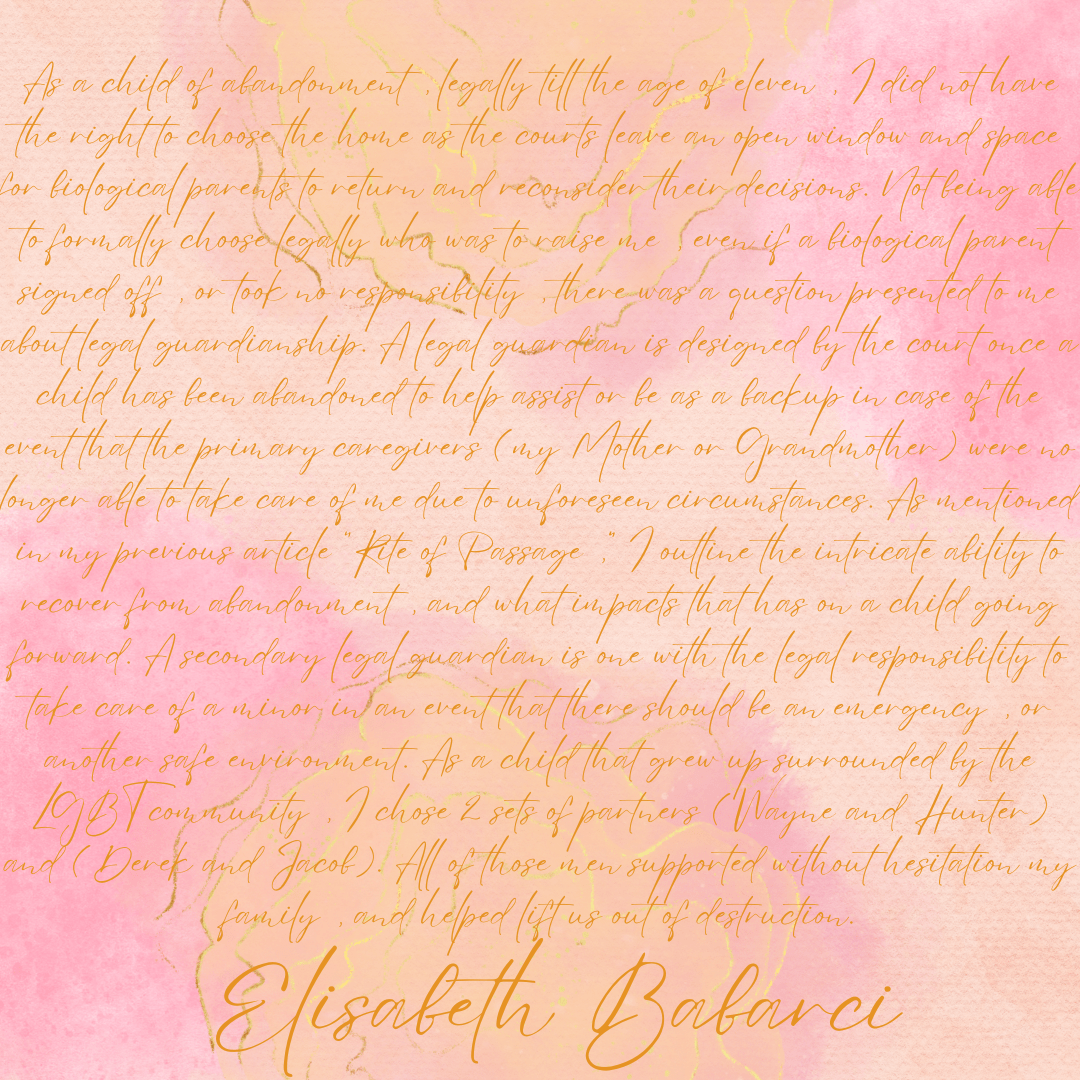 As a child of abandonment , legally till the age of eleven , I did not have
the right to choose the home as the courts leave an open window and space
for biological parents to return and reconsider their decisions. Not being able
to formally choose legally who was to raise me , even if a biological parent
signed off , or took no responsibility , there was a question presented to me
about legal guardianship. A legal guardian is designed by the court once a
child has been abandoned to help assist or be as a backup in case of the
event that the primary caregivers (my Mother or Grandmother) were no
longer able to take care of me due to unforeseen circumstances. As mentioned
in my previous article "Rite of Passage ," I outline the intricate ability to
recover from abandonment , and what impacts that has on a child going
forward. A secondary legal guardian is one with the legal responsibility to
take care of a minor in an event that there should be an emergency , or
another safe environment. As a child that grew up surrounded by the
LGBT community , I chose 2 sets of partners (Wayne and Hunter)
and (Derek and Jacob). All of those men supported without hesitation my
family , and helped lift us out of destruction.
Elisabeth Babarci